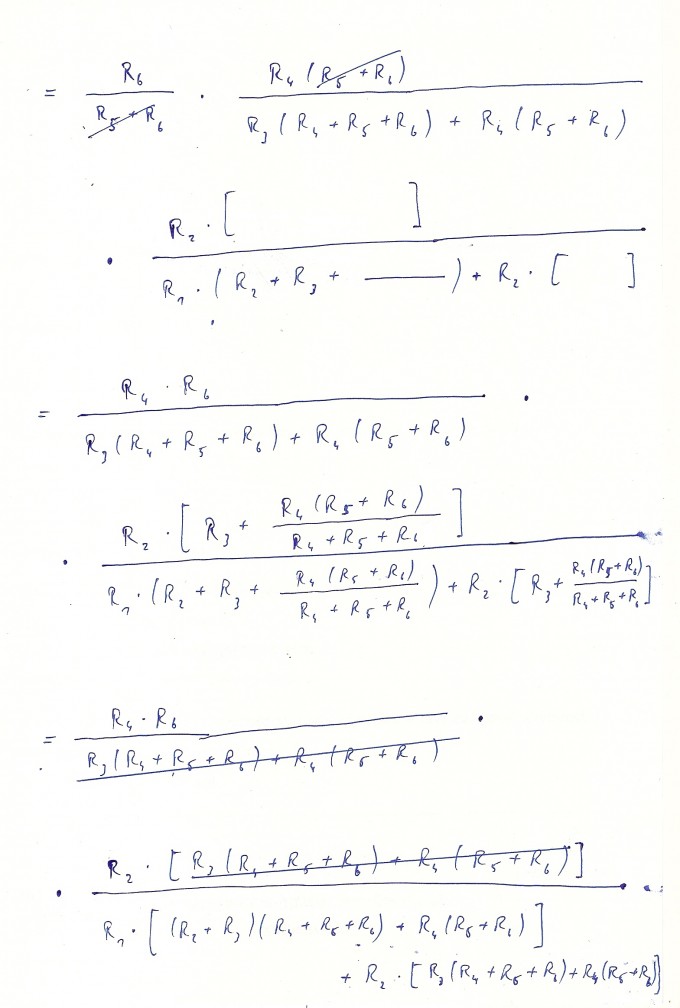 = R₆ / (R₅ + R₆) · R₄ (R₅ + R₆) / (R₃ (R₄ + R₅ + R₆) + R₄ (R₅ + R₆))
· R₂ · [ ] / (R₁ · (R₂ + R₃ + ———) + R₂ · [ ])
= R₄ · R₆ / (R₃ (R₄ + R₅ + R₆) + R₄ (R₅ + R₆)) ·
· R₂ · [ R₃ + R₄ (R₅ + R₆) / (R₄ + R₅ + R₆) ] / (R₁ · (R₂ + R₃ + R₄ (R₅ + R₆) / (R₄ + R₅ + R₆)) + R₂ · [ R₃ + R₄ (R₅ + R₆) / (R₄ + R₅ + R₆) ])
= R₄ · R₆ / (R₃ (R₄ + R₅ + R₆) + R₄ (R₅ + R₆)) ·
· R₂ · [ R₃ (R₄ + R₅ + R₆) + R₄ (R₅ + R₆) ] / (R₁ · [ (R₂ + R₃) (R₄ + R₅ + R₆) + R₄ (R₅ + R₆) ]
+ R₂ · [ R₃ (R₄ + R₅ + R₆) + R₄ (R₅ + R₆) ])